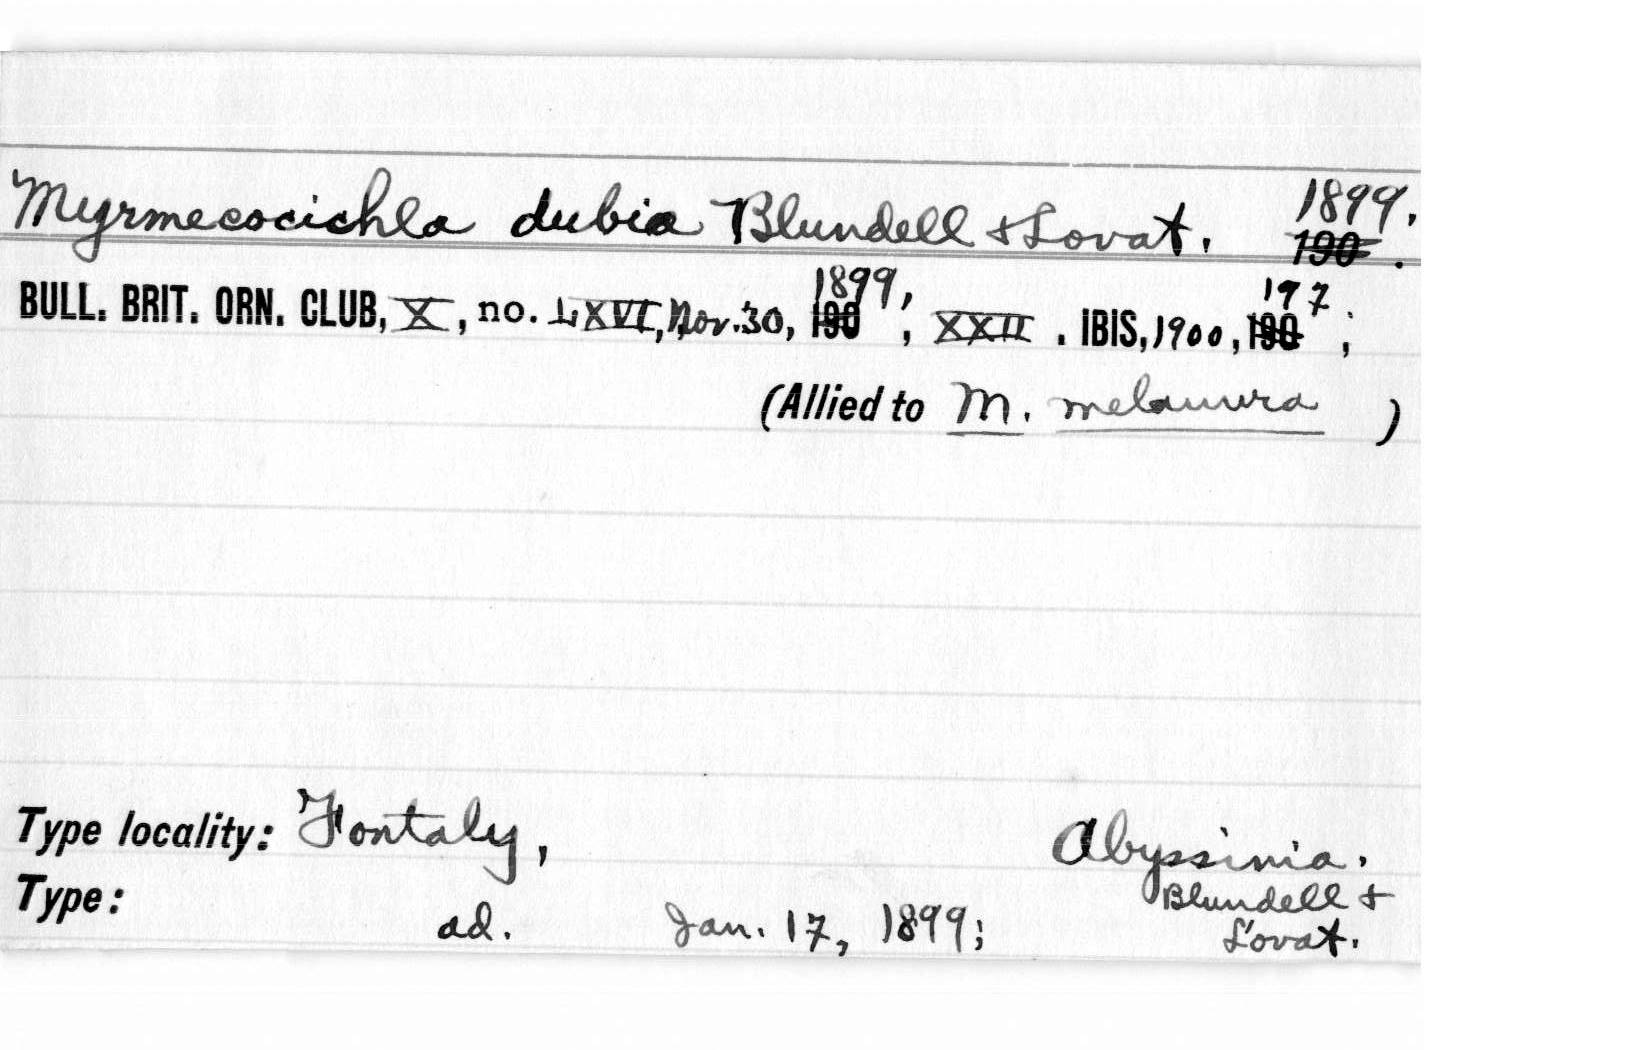 Myrmecocichla dubia Blundell & Lovat. 1899.
190 .
BULL. BRIT. ORN. CLUB, X, no. LXVI, Nov. 30, 190 1899, ; XXII . IBIS, 1900, 190 197 ;
(Allied to M. melanura )
Type locality: Fontaly, Abyssinia.
Type: ad. Jan. 17, 1899; Blundell & Lovat.